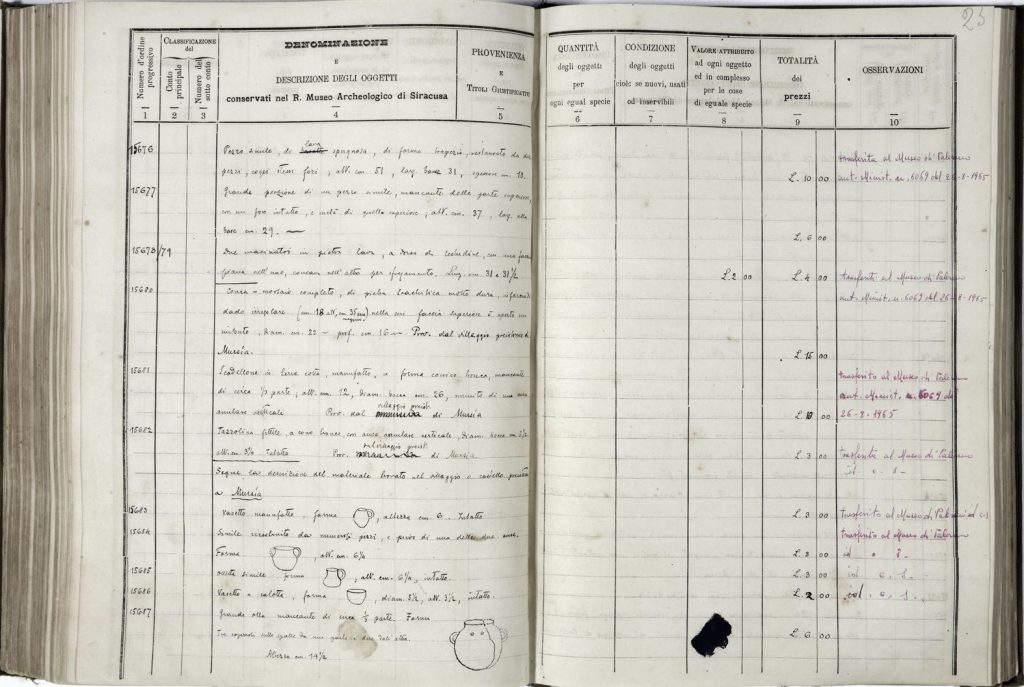 23
Numero d'ordine progressivo
1
CLASSIFICAZIONE
del
Conto principale
2
Numero del sotto conto
3
DENOMINAZIONE
E
DESCRIZIONE DEGLI OGGETTI
conservati nel R. Museo Archeologico di Siracusa
4
PROVENIENZA
E
TITOLI GIUSTIFICATIVI
5
QUANTITÀ
degli oggetti
per
ogni egual specie
6
CONDIZIONE
degli oggetti
cioè: se nuovi, usati
od inservibili
7
VALORE ATTRIBUITO
ad ogni oggetto
ed in complesso
per le cose
di eguale specie
8
TOTALITÀ
dei
prezzi
9
OSSERVAZIONI
10
15676 Pezzo simile, di lava spugnosa, di forma trapezia, restaurato da due
pezzi, cogli stessi fori, alt. cm. 51, larg. base 31, spessore cm. 19.
L. 10 00
trasferita al Museo di Palermo
aut. Minist. n. 6069 del 26-8-1965
15677 Grande porzione di un pezzo simile, mancante della parte superiore,
con un foro intatto, e metà di quello superiore, alt. cm. 37, larg. alla
base cm. 29. —
L. 6 00
15678/79 Due macinatoi in pietra lava, a dorso di testudine, con una faccia
piana nell'uno, concava nell'altro per sfregamento. Lung. cm. 31 e 31½
L. 2 00 L. 4 00
trasferiti al Museo di Palermo
aut. Minist. n. 6069 del 26-8-1965
15680 Conca = mortaio completo, di pietra trachitica molto dura, in forma di
dado irregolare (cm. 18 alt, cm. 35 maggiore) nella cui faccia superiore è aperto un
imbuto, diam. cm. 22 — prof. cm. 16 — Prov. dal villaggio preistorico di
Mursia.
L. 15 00
15681 Scodellone in terra cotta, manufatto, a forma conica bocca, mancante
di circa ⅓ parte, alt. cm. 12, diam. bocca cm. 26, munito di una ansa
anulare verticale Prov. dal villaggio preist. di Mursia
L. 10 00
trasferito al Museo di Palermo
aut. Minist. n. 6069 del
26-8-1965
15682 Tazzolina fittile, a cono tronco, con ansa anulare verticale, diam. bocca cm. 5½
alt. cm. 3½. Intatto Prov. dal villaggio preist. di Mursia.
L. 3 00
trasferita al Museo di Palermo
id. c. s.
Segue la descrizione del materiale trovato nel villaggio o castello preistorico
a Mursia
15683 Vasetto manufatto, forma , altezza cm. 6. Intatto
L. 3 00
trasferito al Museo di Palermo id c.s
15684 Simile ricostruito da numerosi pezzi, e privo di una delle due anse.
Forma , alt. cm. 6½
L. 2 00
trasferito al Museo di Palermo
id. c. s.
15685 simile, forma , alt. cm. 6½, intatto.
L. 3 00
id. c. s.
15686 Vasetto a calotta, forma , diam. 5½, alt. 3½, intatto.
L. 2 00
id. c. s.
15687 Grande olla mancante di circa ⅓ parte. Forma
L. 6 00
Altezza cm. 14½